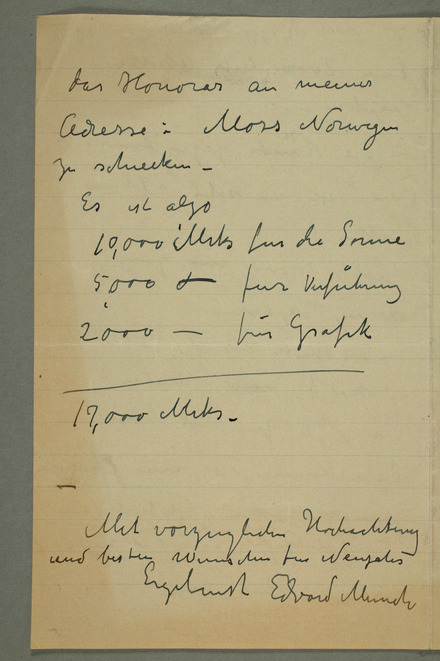 das Honorar an meine
Adresse: Moss Norwegen
zu schicken –
Es ist also
10,000 Mrks für die Sonne
5,000 – für Verführung
2,000 – für Grafik
17,000 Mrks –
Mit vorzüglicher Hochachtung
und besten Wünschen für Neujahr
Ergebenst Edvard Munch